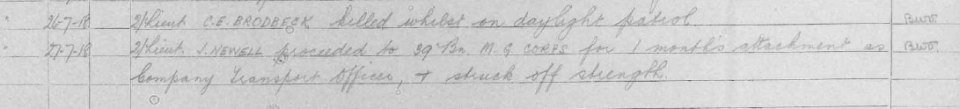 " 26-7-18 2/Lieut C.E. BRODBECK killed whilst on daylight patrol. B.W.T.
" 27-7-18 2/Lieut. J. NEWELL proceeded to 39 Bn. M G CORPS for 1 month's attachment as B.W.T.
Company Transport Officer, & struck off strength.